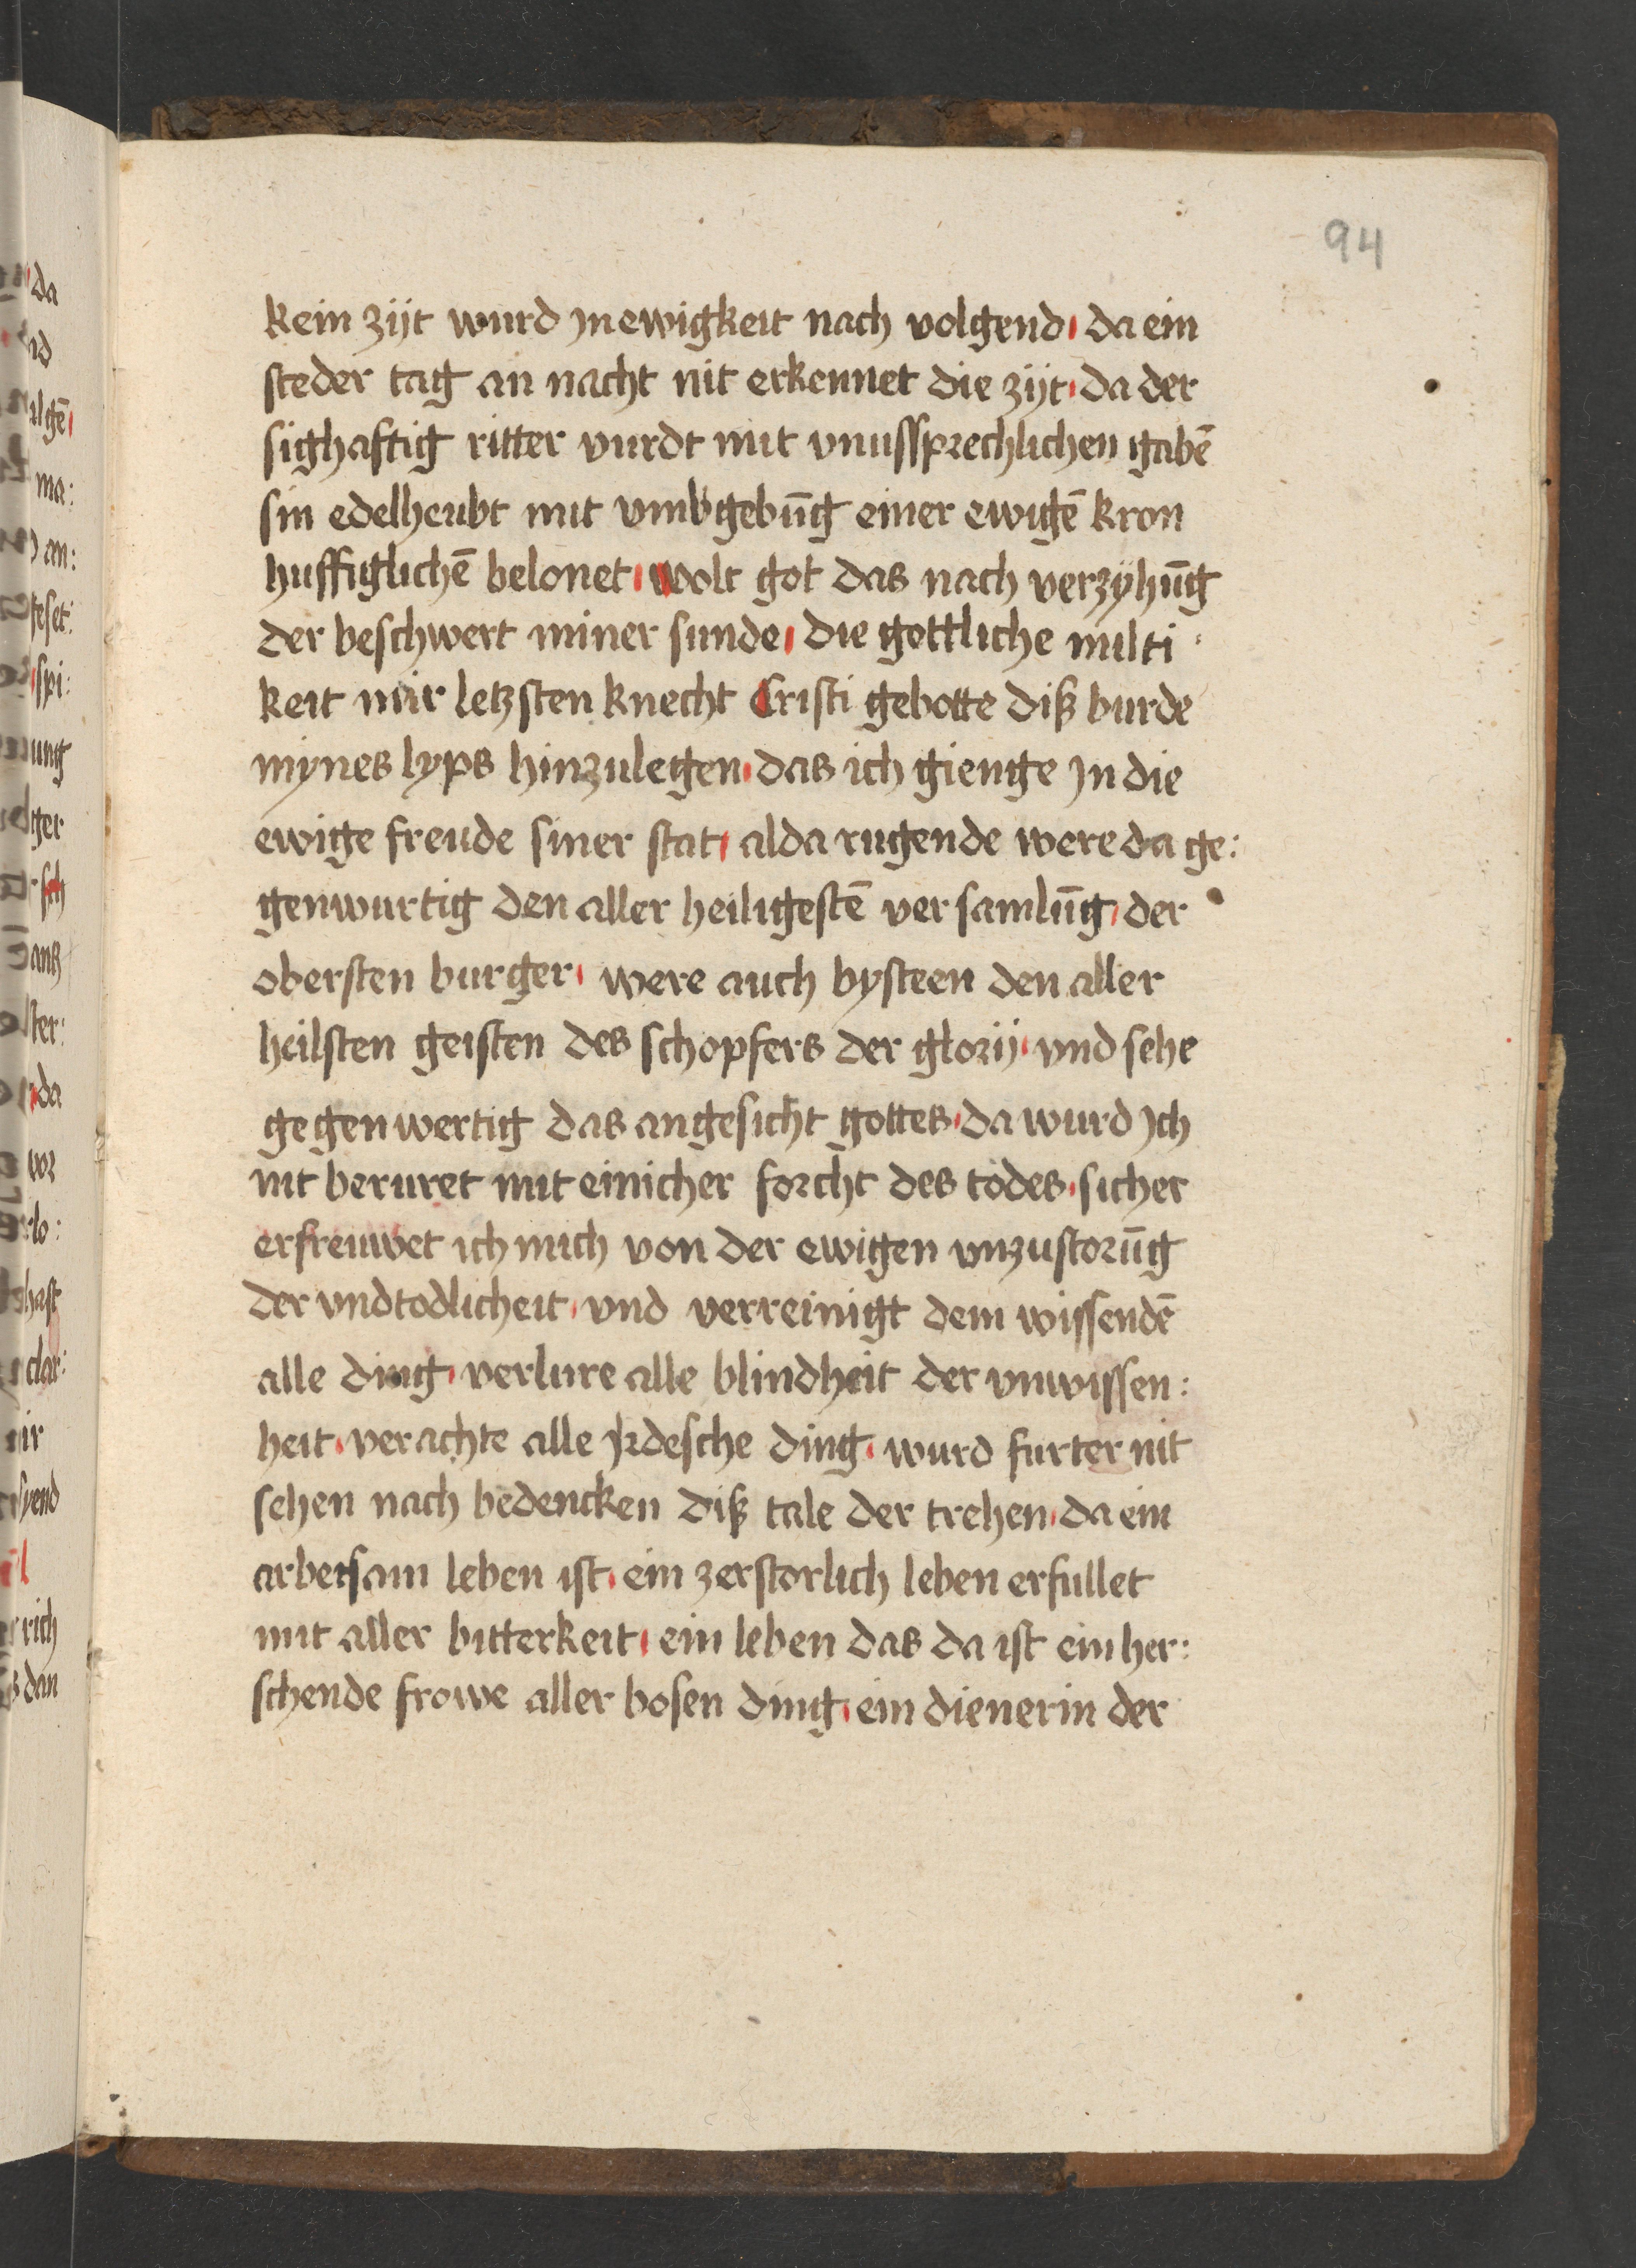 94
kein zijt wurd jn ewigkeit nach volgend da ein
steder tag an nacht nit erkennet die zijt da der
sighaftig ritter vurdt mit vnussprechlichen gabē
sin edelheubt mit vmbgebūg einer ewigē kron
huffiglichē belonet wolt got das nach verzyhūg
der beschwert miner sunde die gottliche milti
keit mir letzsten knecht Cristi gebotte diß burde
mynes lyps hinzulegen das ich gienge jn die
ewige freude siner stat alda rugende were da ge:
genwurtig den aller heiligestē versamlūg der
obersten burger were auch bysteen den aller
heilsten geisten des schopfers der glorij vnd sehe
gegenwertig das angesicht gottes da wurd jch
nit beruret mit einicher forcht des todes sicher
erfreuwet ich mich von der ewigen vnzustorūg
der vndtodlicheit vnd verreinigt dem wissendē
alle ding verlure alle blindheit der vnwissen:
heit verachte alle jrdesche ding wurd furter nit
sehen nach bedencken diß tale der trehen da ein
arbeisam leben ist ein zerstorlich leben erfullet
mit aller bitterkeit ein leben das da ist ein her:
schende frowe aller bosen ding ein dienerin der